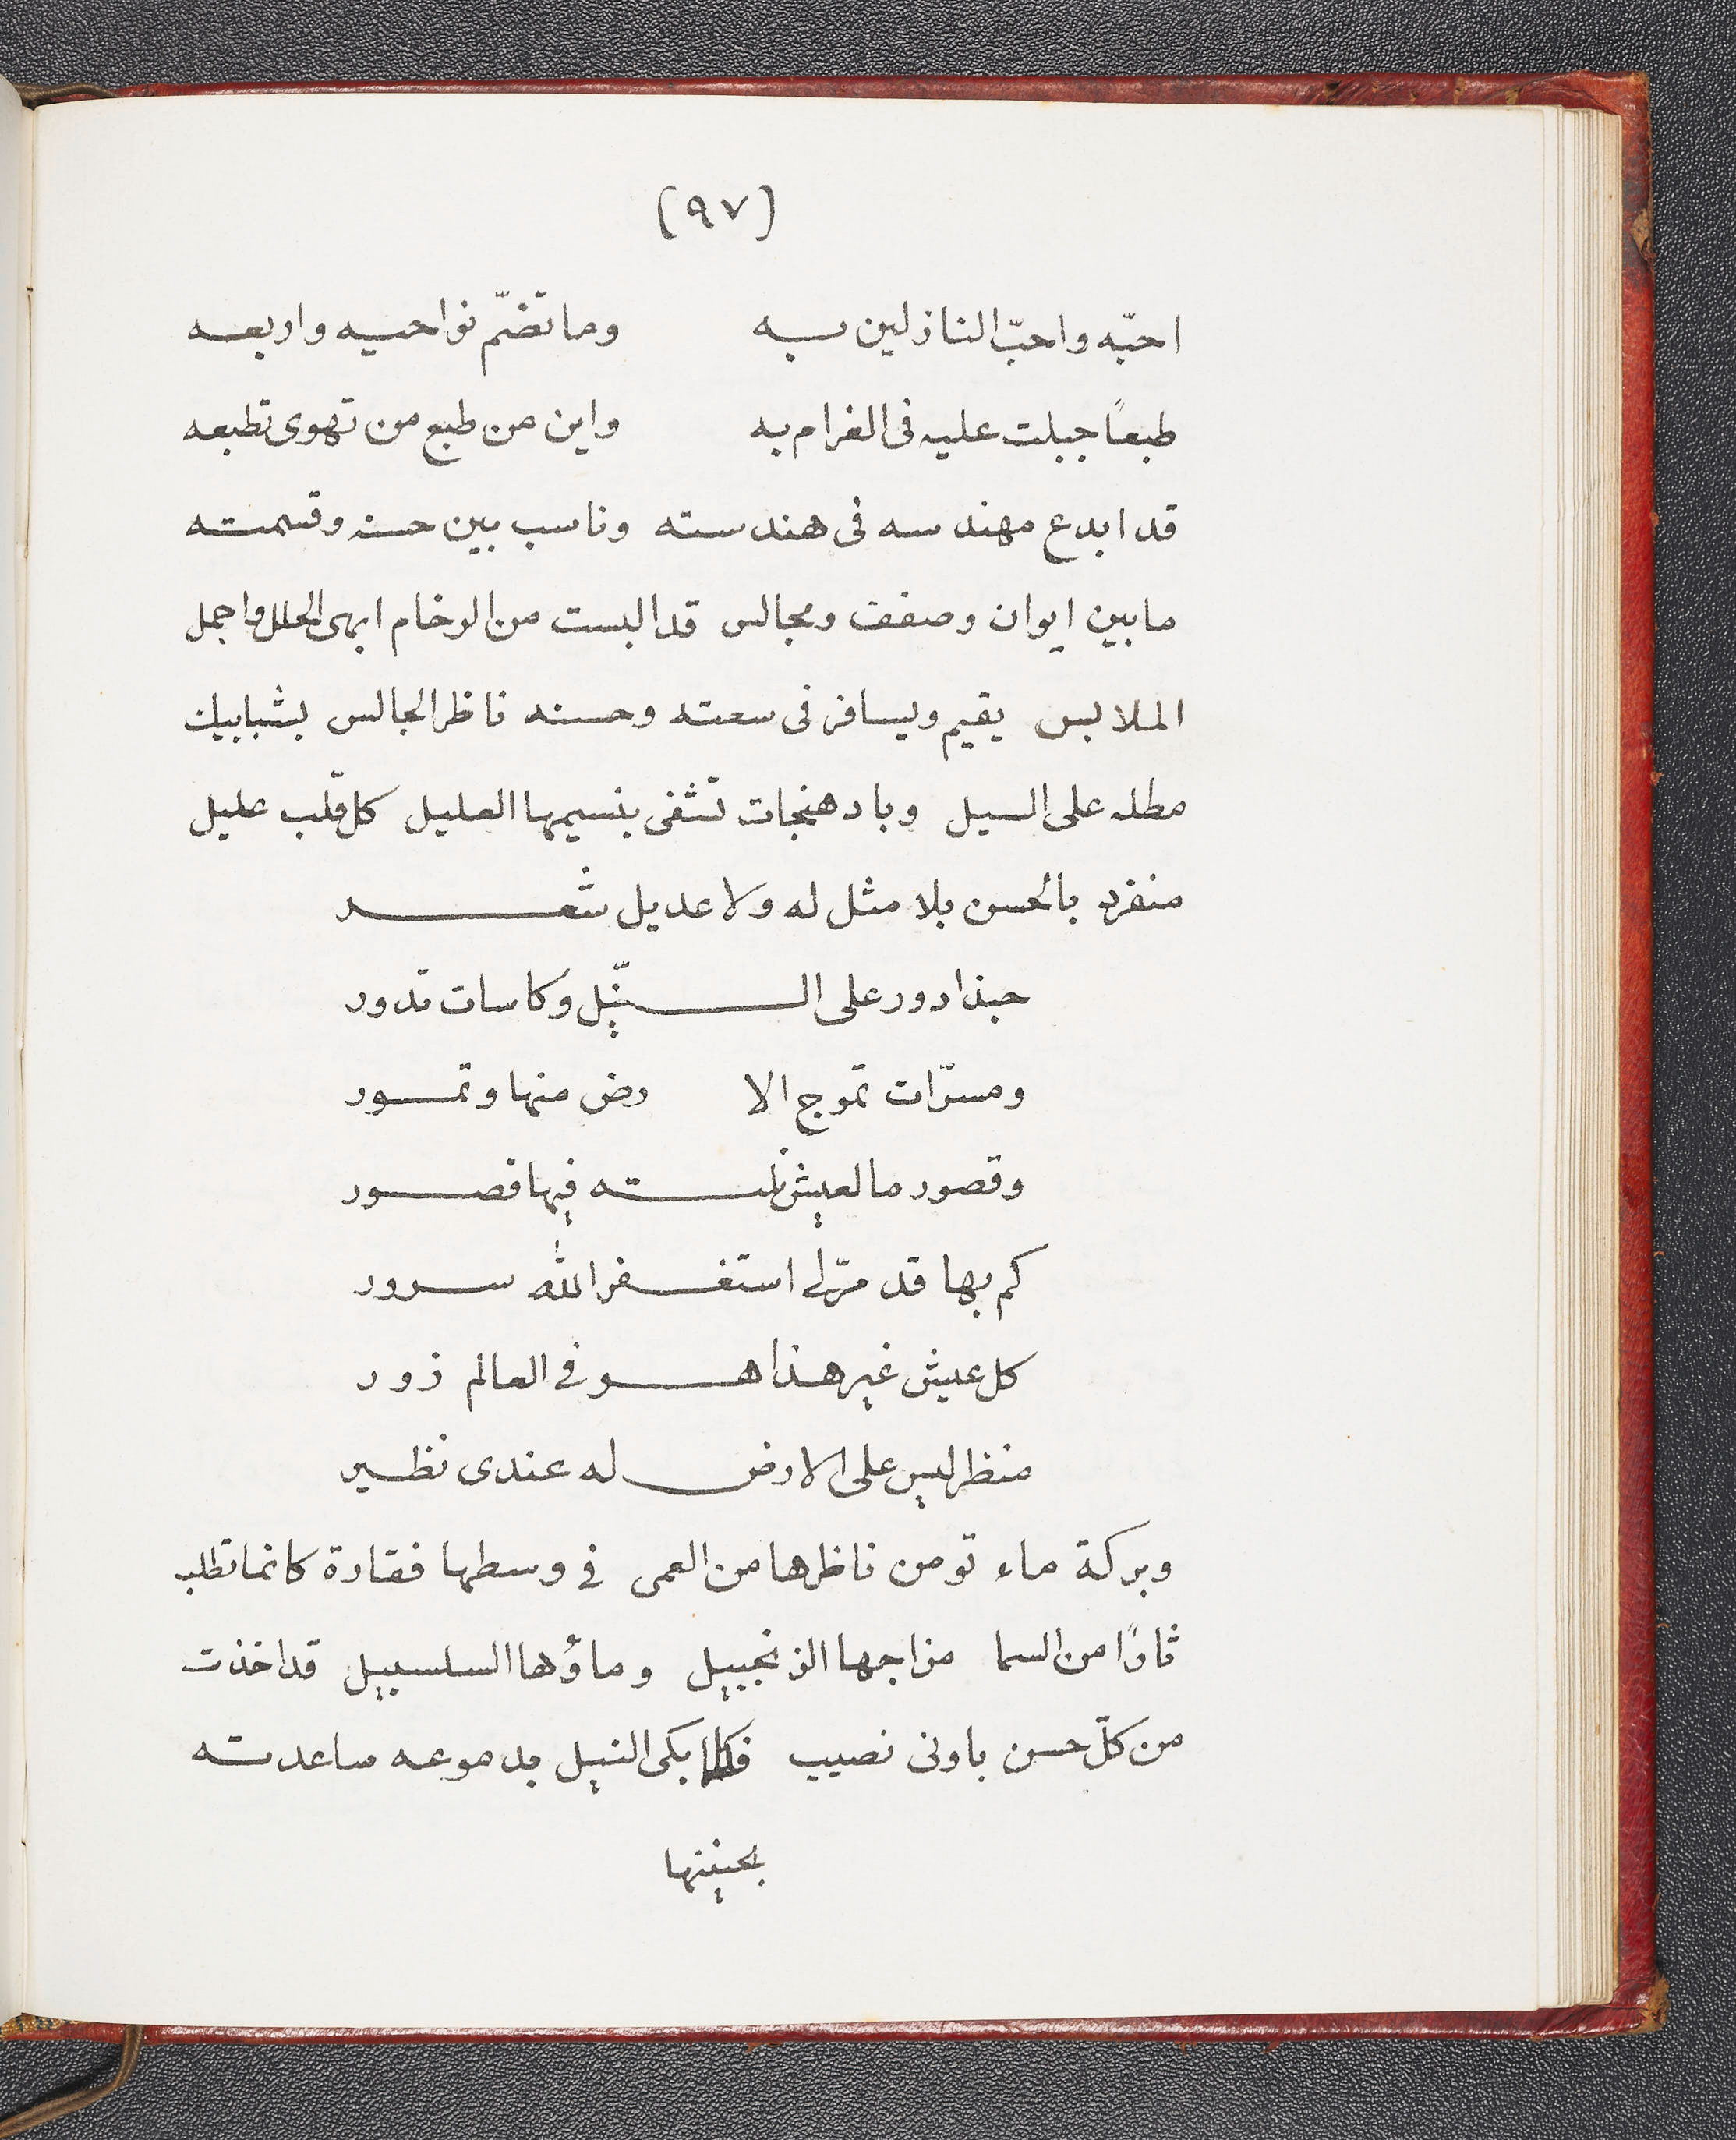 (٩٧)
احبّه واحبّ النازلين به وما تضمّ نواحيه واربعه
طبعاً جبلت عليه فى الغرام به واين من طبع من تهوى تطبعه
قد ابدع مهندسه فى هندسته وناسب بين حسنه وقسمته
ما بين ايوان وصفف ومجالس قد البست من الرخام ابهى الحلل واجمل
الملابس يقيم ويسافر فى سعته وحسنه ناظر الجالس بشبابيك
مطله على السيل وبادهنجات تشفى بنسيمها العليل كل قلب عليل
منفرد بالحسن بلا مثل له ولا عديل شعر
حبذا دور على النّيل وكاسات تدور
ومسرّات تموج الا رض منها وتمور
وقصور ما لعيش نلته فيها قصور
كم بها قد مرّ لى استغفر الله سرور
كل عيش غير هذا هو في العالم زور
منظر ليس على الارض له عندى نظير
وبركة ماء تومن ناظرها من العمى في وسطها فقارة كانما تطلب
ثارًا من السما مزاجها الزنجبيل وماؤها السلسبيل قد اخذت
من كلّ حسن باوفى نصيب فكلما بكى النيل بدموعه ساعدته
بحنينها